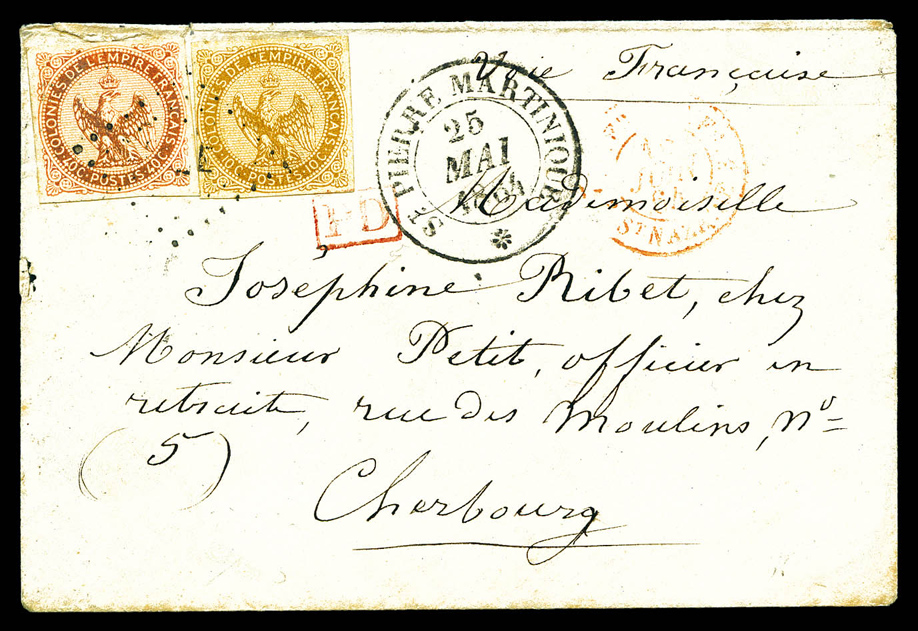 Voie Française
COLONIES DE L'EMPIRE FRANÇAIS
40.C. POSTES 40C.
COLONIES DE L'EMPIRE FRANÇAIS
10.C. POSTES 10C.
ST PIERRE MARTINIQUE
25
MAI
PD
Mademoiselle
Josephine Ribet, chez
Monsieur Petit, officier en
retraite, rue des Moulins, No
(5)
Cherbourg